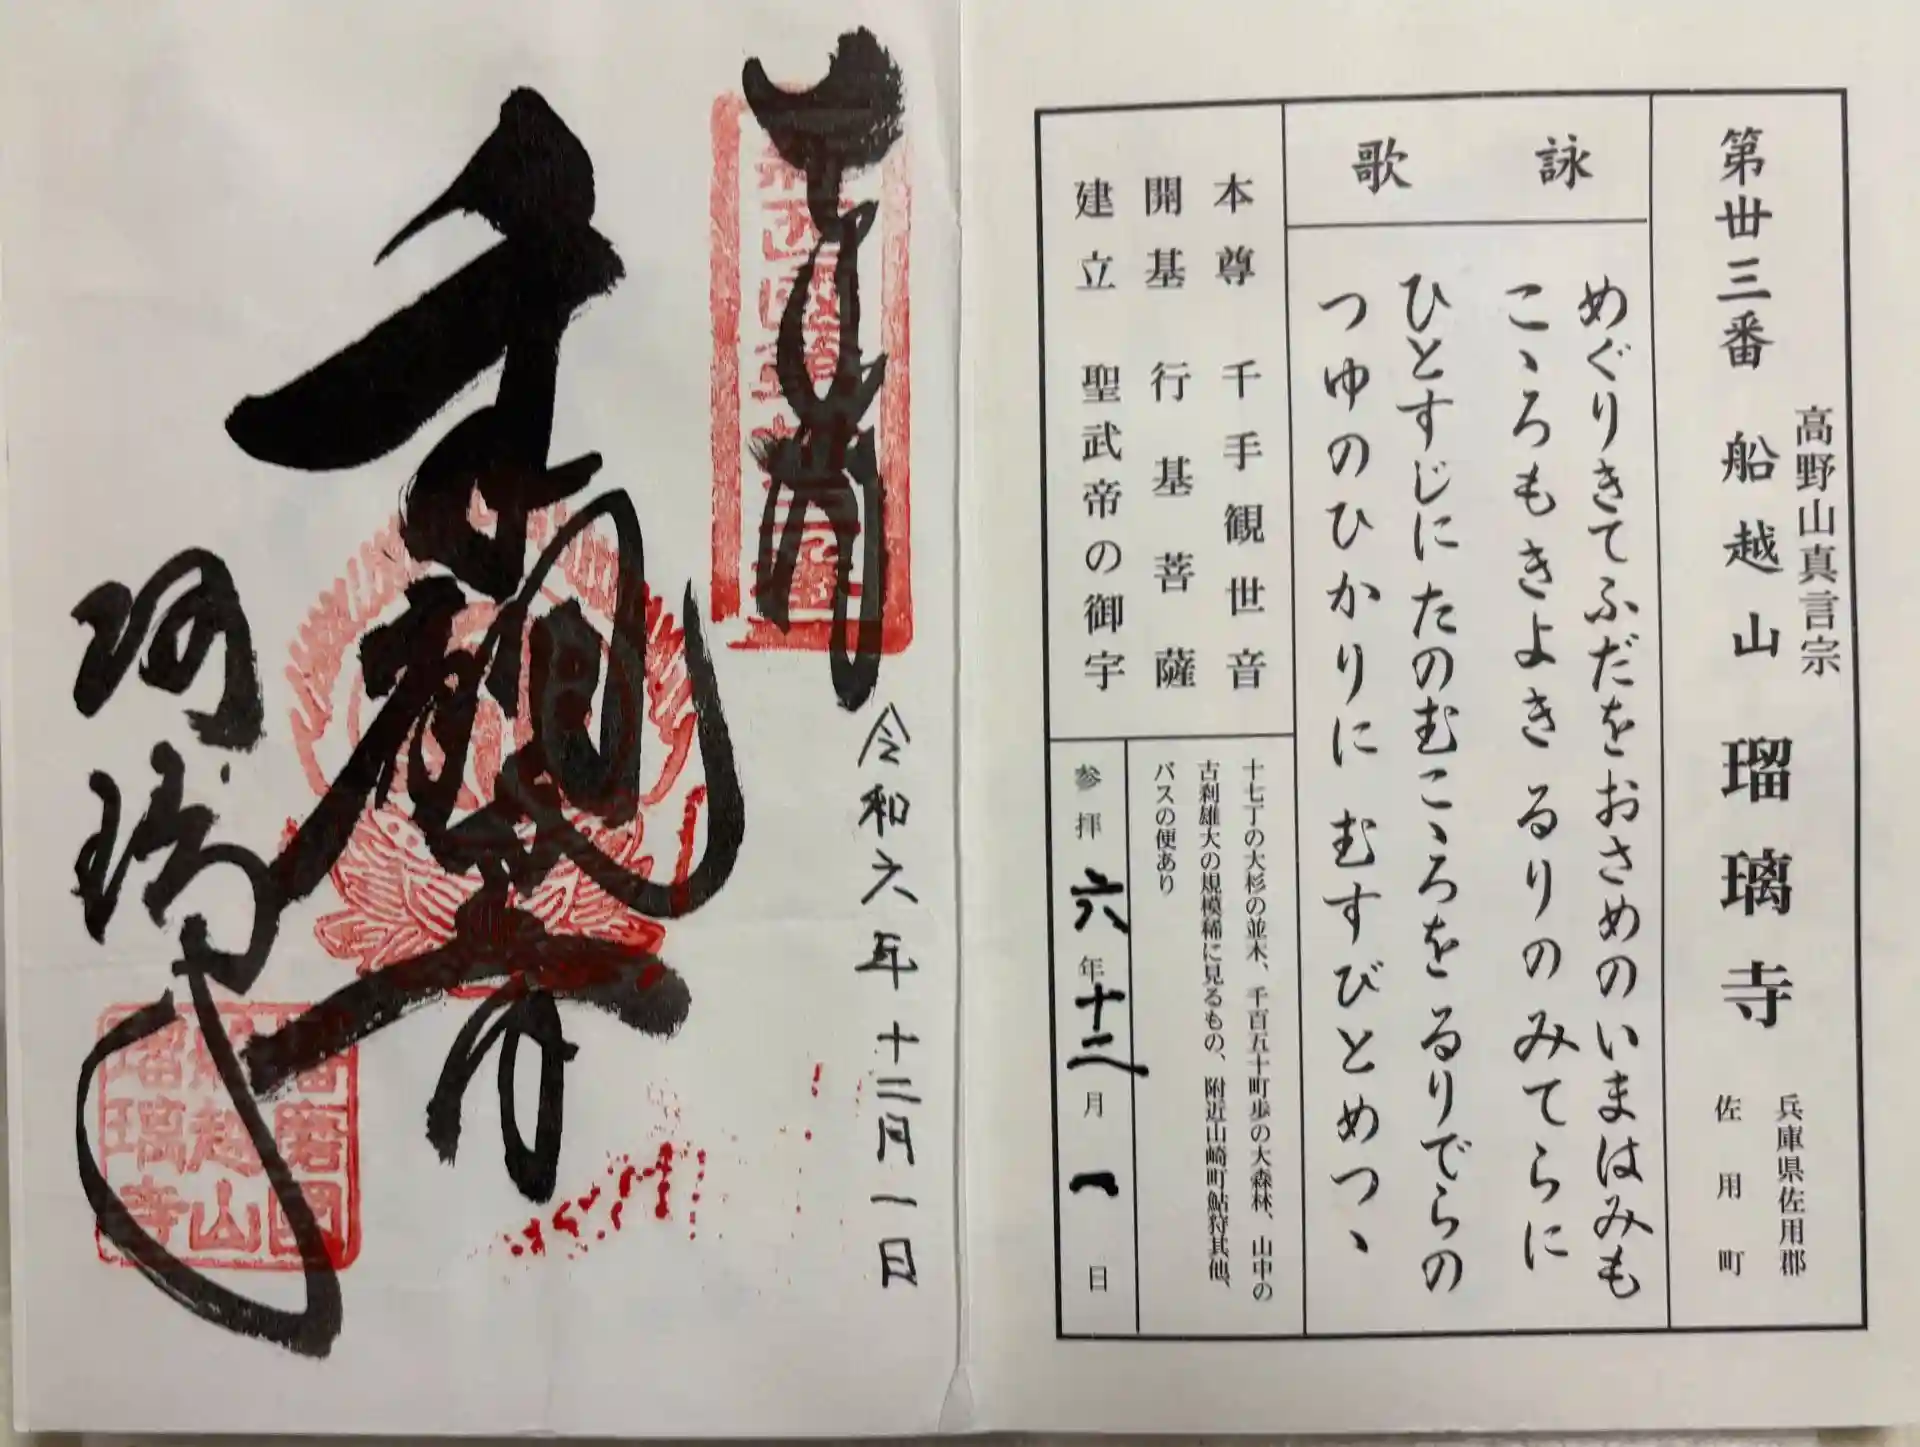 第丗三番 船越山 瑠璃寺
高野山真言宗
兵庫県佐用郡
佐用町
詠歌
めぐりきてふだをおさめのいまはみも
こゝろもきよきるりのみてらに
ひとすじにたのむこゝろをるりでらの
つゆのひかりにむすびとめつゝ
本尊 千手観世音
開基 行基菩薩
建立 聖武帝の御宇
十七丁の大杉の並木、千百五十町歩の大森林、山中の
古刹雄大の規模稀に見るもの、附近山崎町鮎狩其他、
バスの便あり
参拝 六年十二月一日
令和六年十二月一日
播磨國
船越山
瑠璃寺